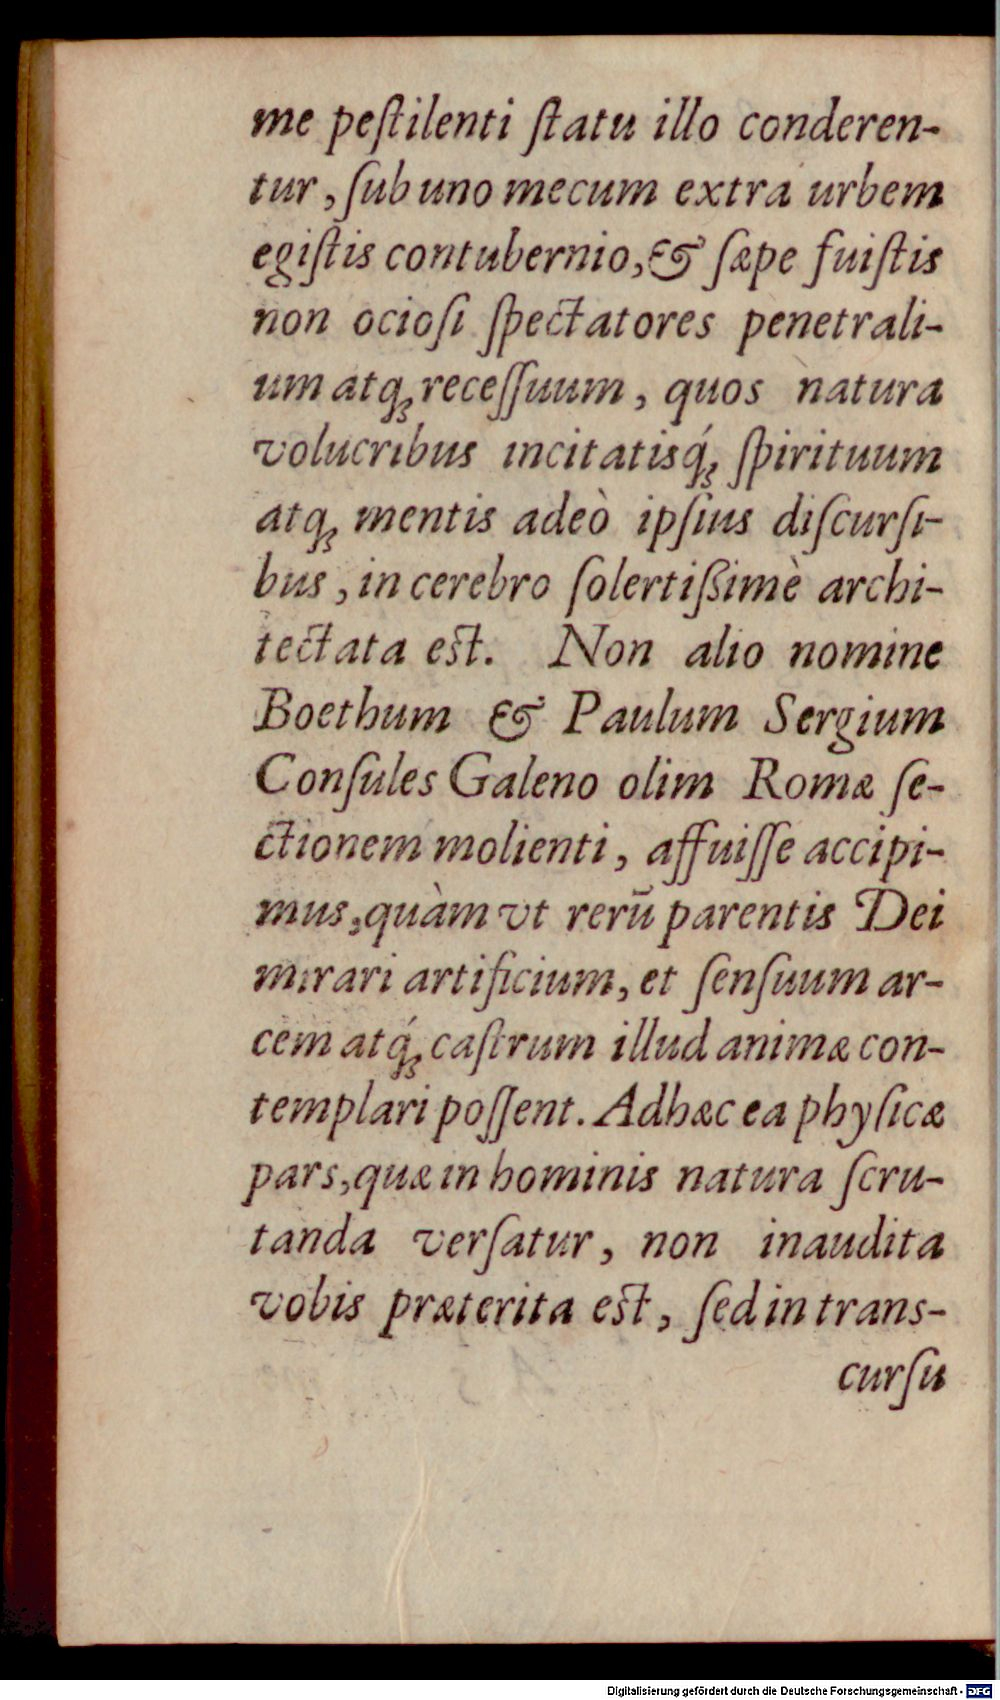 me peſtilenti ſtatu illo conderen-
tur, ſub uno mecum extra urbem
egiſtis contubernio, & ſæpe fuiſtis
non ocioſi ſpectatores penetrali-
um atq; receſſuum, quos natura
volucribus incitatisq́; ſpirituum
atq; mentis adeò ipſius diſcurſi-
bus, in cerebro ſolertißimè archi-
tectata est. Non alio nomine
Boethum & Paulum Sergium
Conſules Galeno olim Romæ ſe-
ctionem molienti, affuiſſe accipi-
mus, quàm vt rerū parentis Dei
mirari artificium, et ſenſuum ar-
cem atq́; caſtrum illud animæ con-
templari poſſent. Adhæc ea phyſicæ
pars, quæ in hominis natura ſcru-
tanda verſatur, non inaudita
vobis præterita est, ſed in trans-
curſu
Digitalisierung gefördert durch die Deutsche Forschungsgemeinschaft - DFG